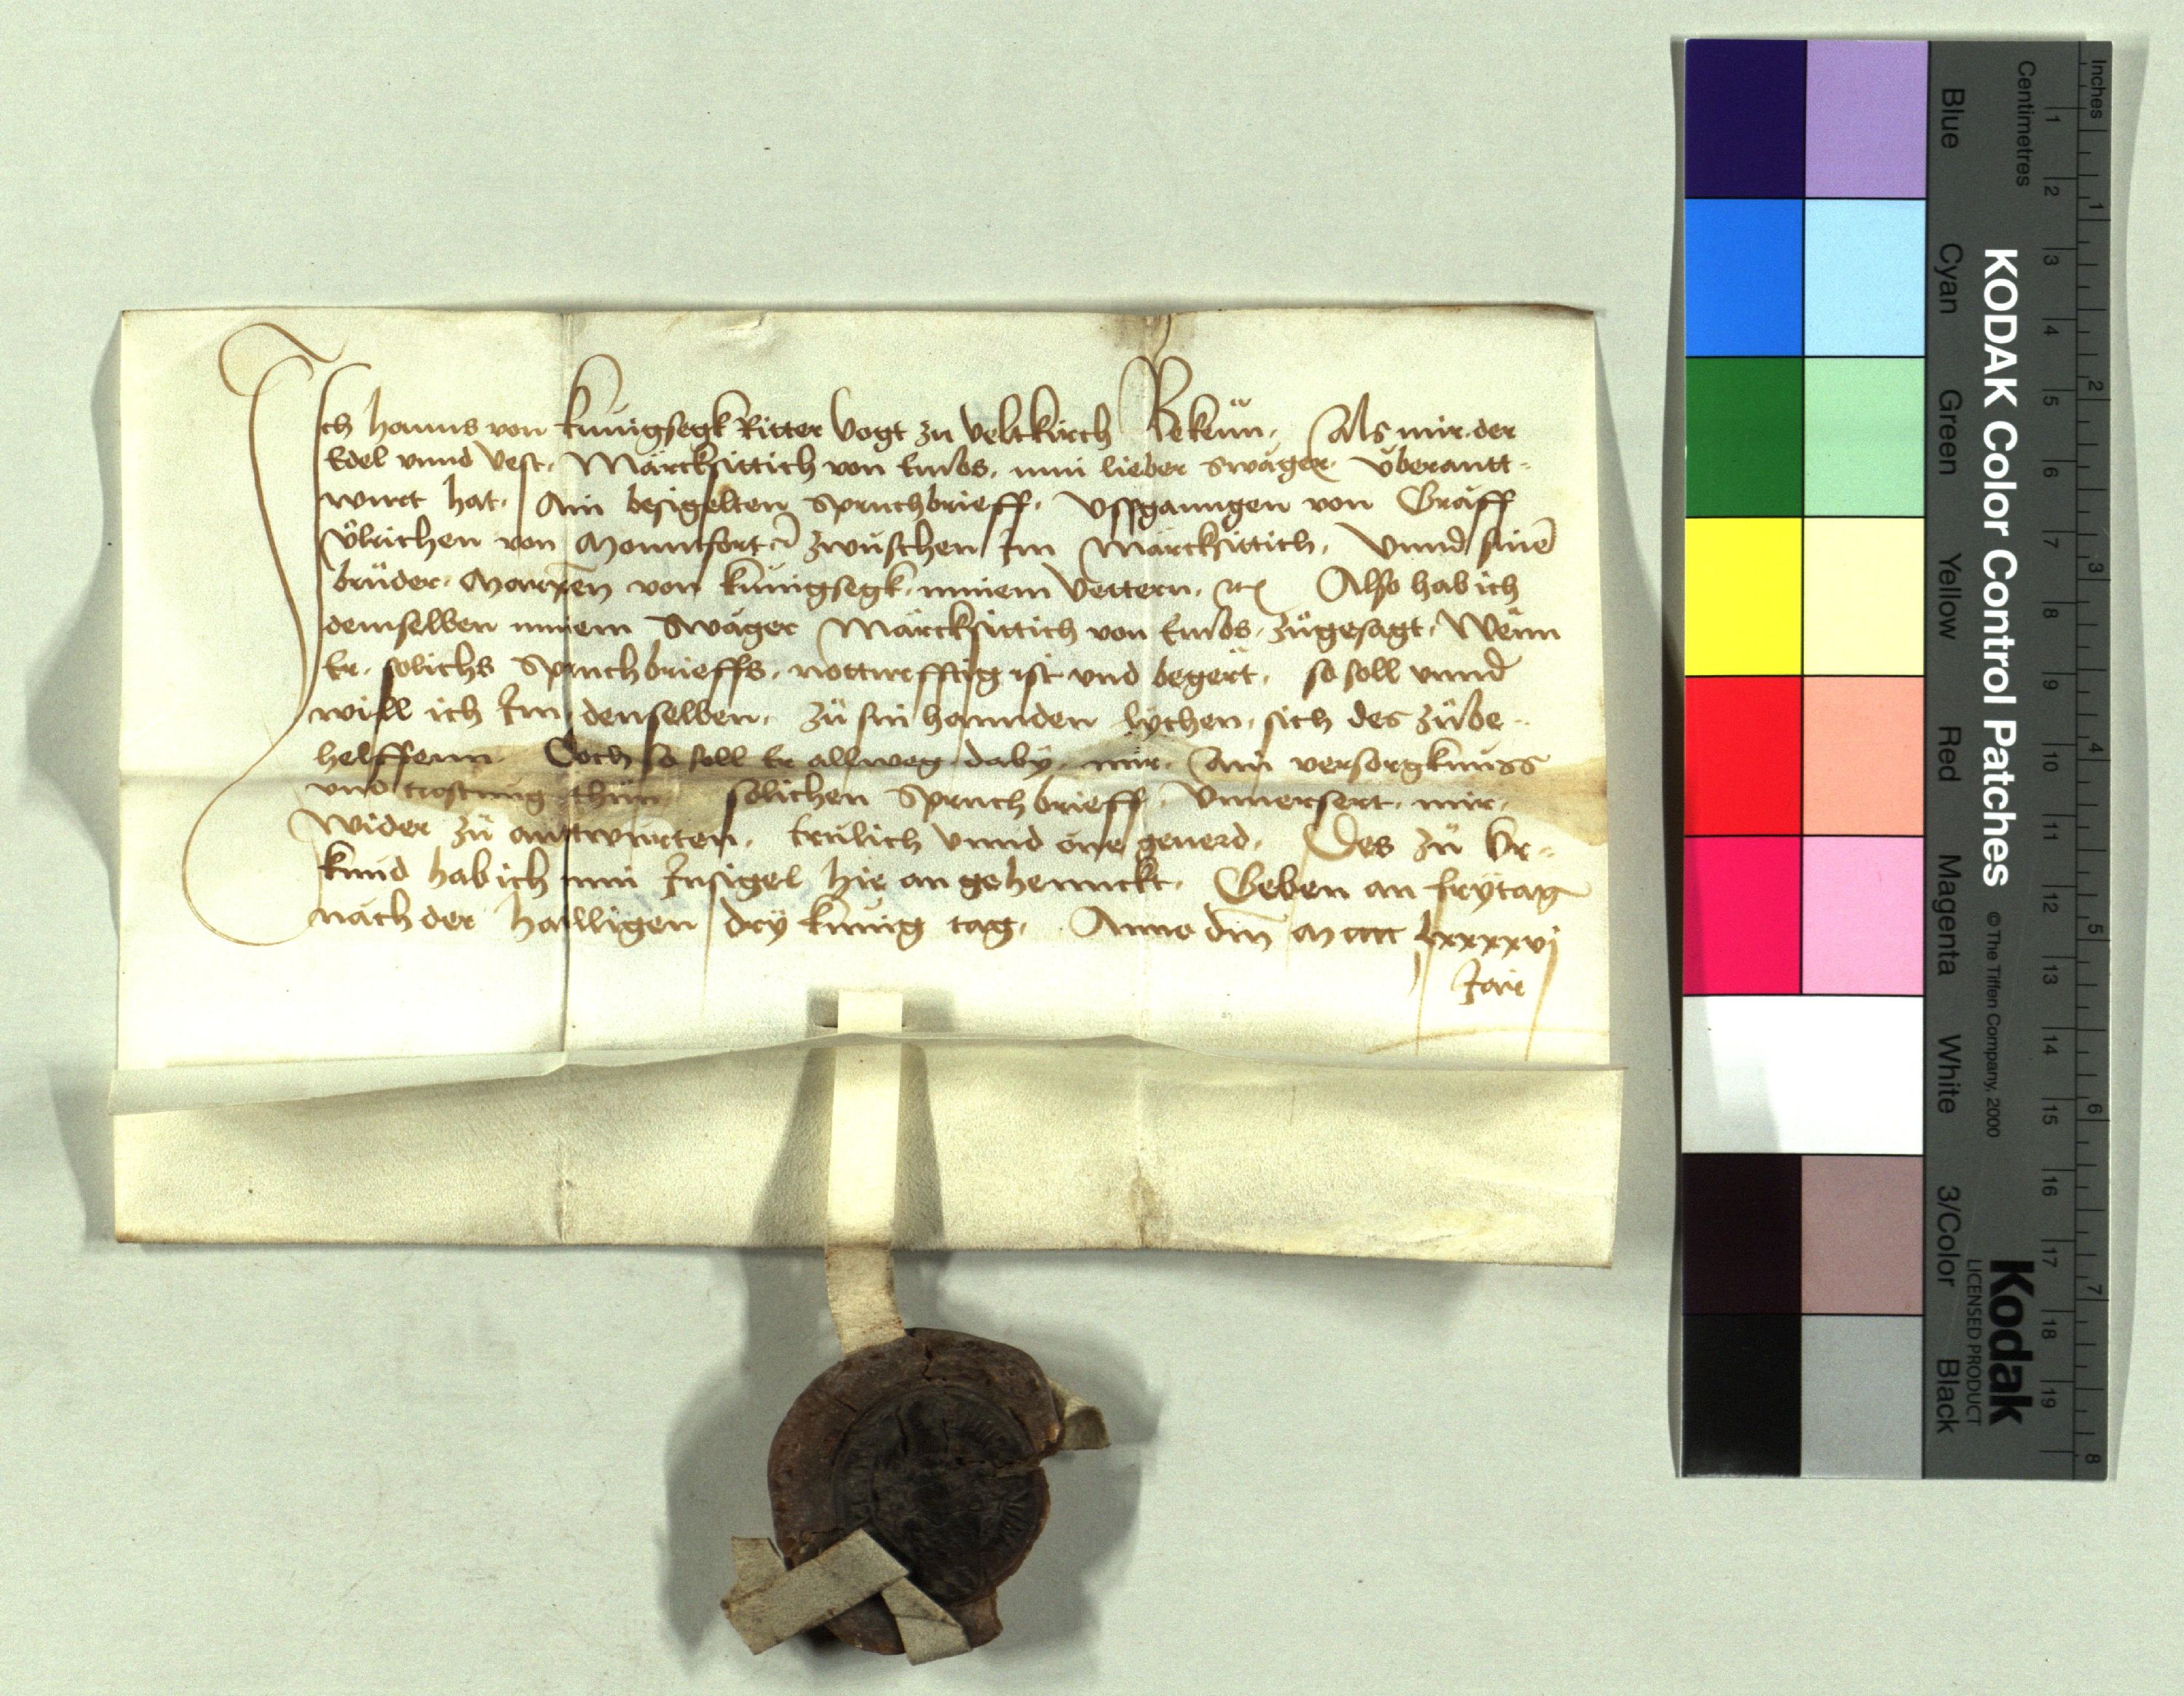 Ich Hanns von kúnigsegk Ritter Vogt zu Veltkirch Bekenn. Als mir der
Edel vnnd Vest. Märcksittich von Embs. min lieber Swager. Vberantt-
wurt hat. Ain besigelten Spruchbrieff. Vssganngen von Graff
Vlrichen von Monntfort zwúschen Im Märcksittich. Vnnd sinē
brüder. Marxen von kúnigsegk. minem Vettern. Also hab ich
demselben minem Swager Märcksittich von Embs. zügesagt. Wenn
Er. solichs Spruchbrieffs. notturfftig ist vnd begert. so soll vnnd
will ich Im denselben. zü sin hannden lychen. sich des zübe-
helffenn. Doch so soll Er allweg daby. mir. Ain versorgknúss
vnd trostung thün solichen Spruchbrieff. Vnuersert. mir.
Wider zü anttwúrten. trúlich Vnnd one geuerd. Des zü Vr-
kund hab ich min Insigel hie an gehennckt. Geben an frÿtag
nach der hailligen drÿ kúnig tag. Anno dm̄ M cccc lxxxxvj
Jare
KODAK Color Control Patches
© The Tiffen Company, 2000
Kodak
LICENSED PRODUCT
Inches
Centimetres
1 2 3 4 5 6 7 8 9 10 11 12 13 14 15 16 17 18 19
1 2 3 4 5 6 7 8
Blue
Cyan
Green
Yellow
Red
Magenta
White
3/Color
Black